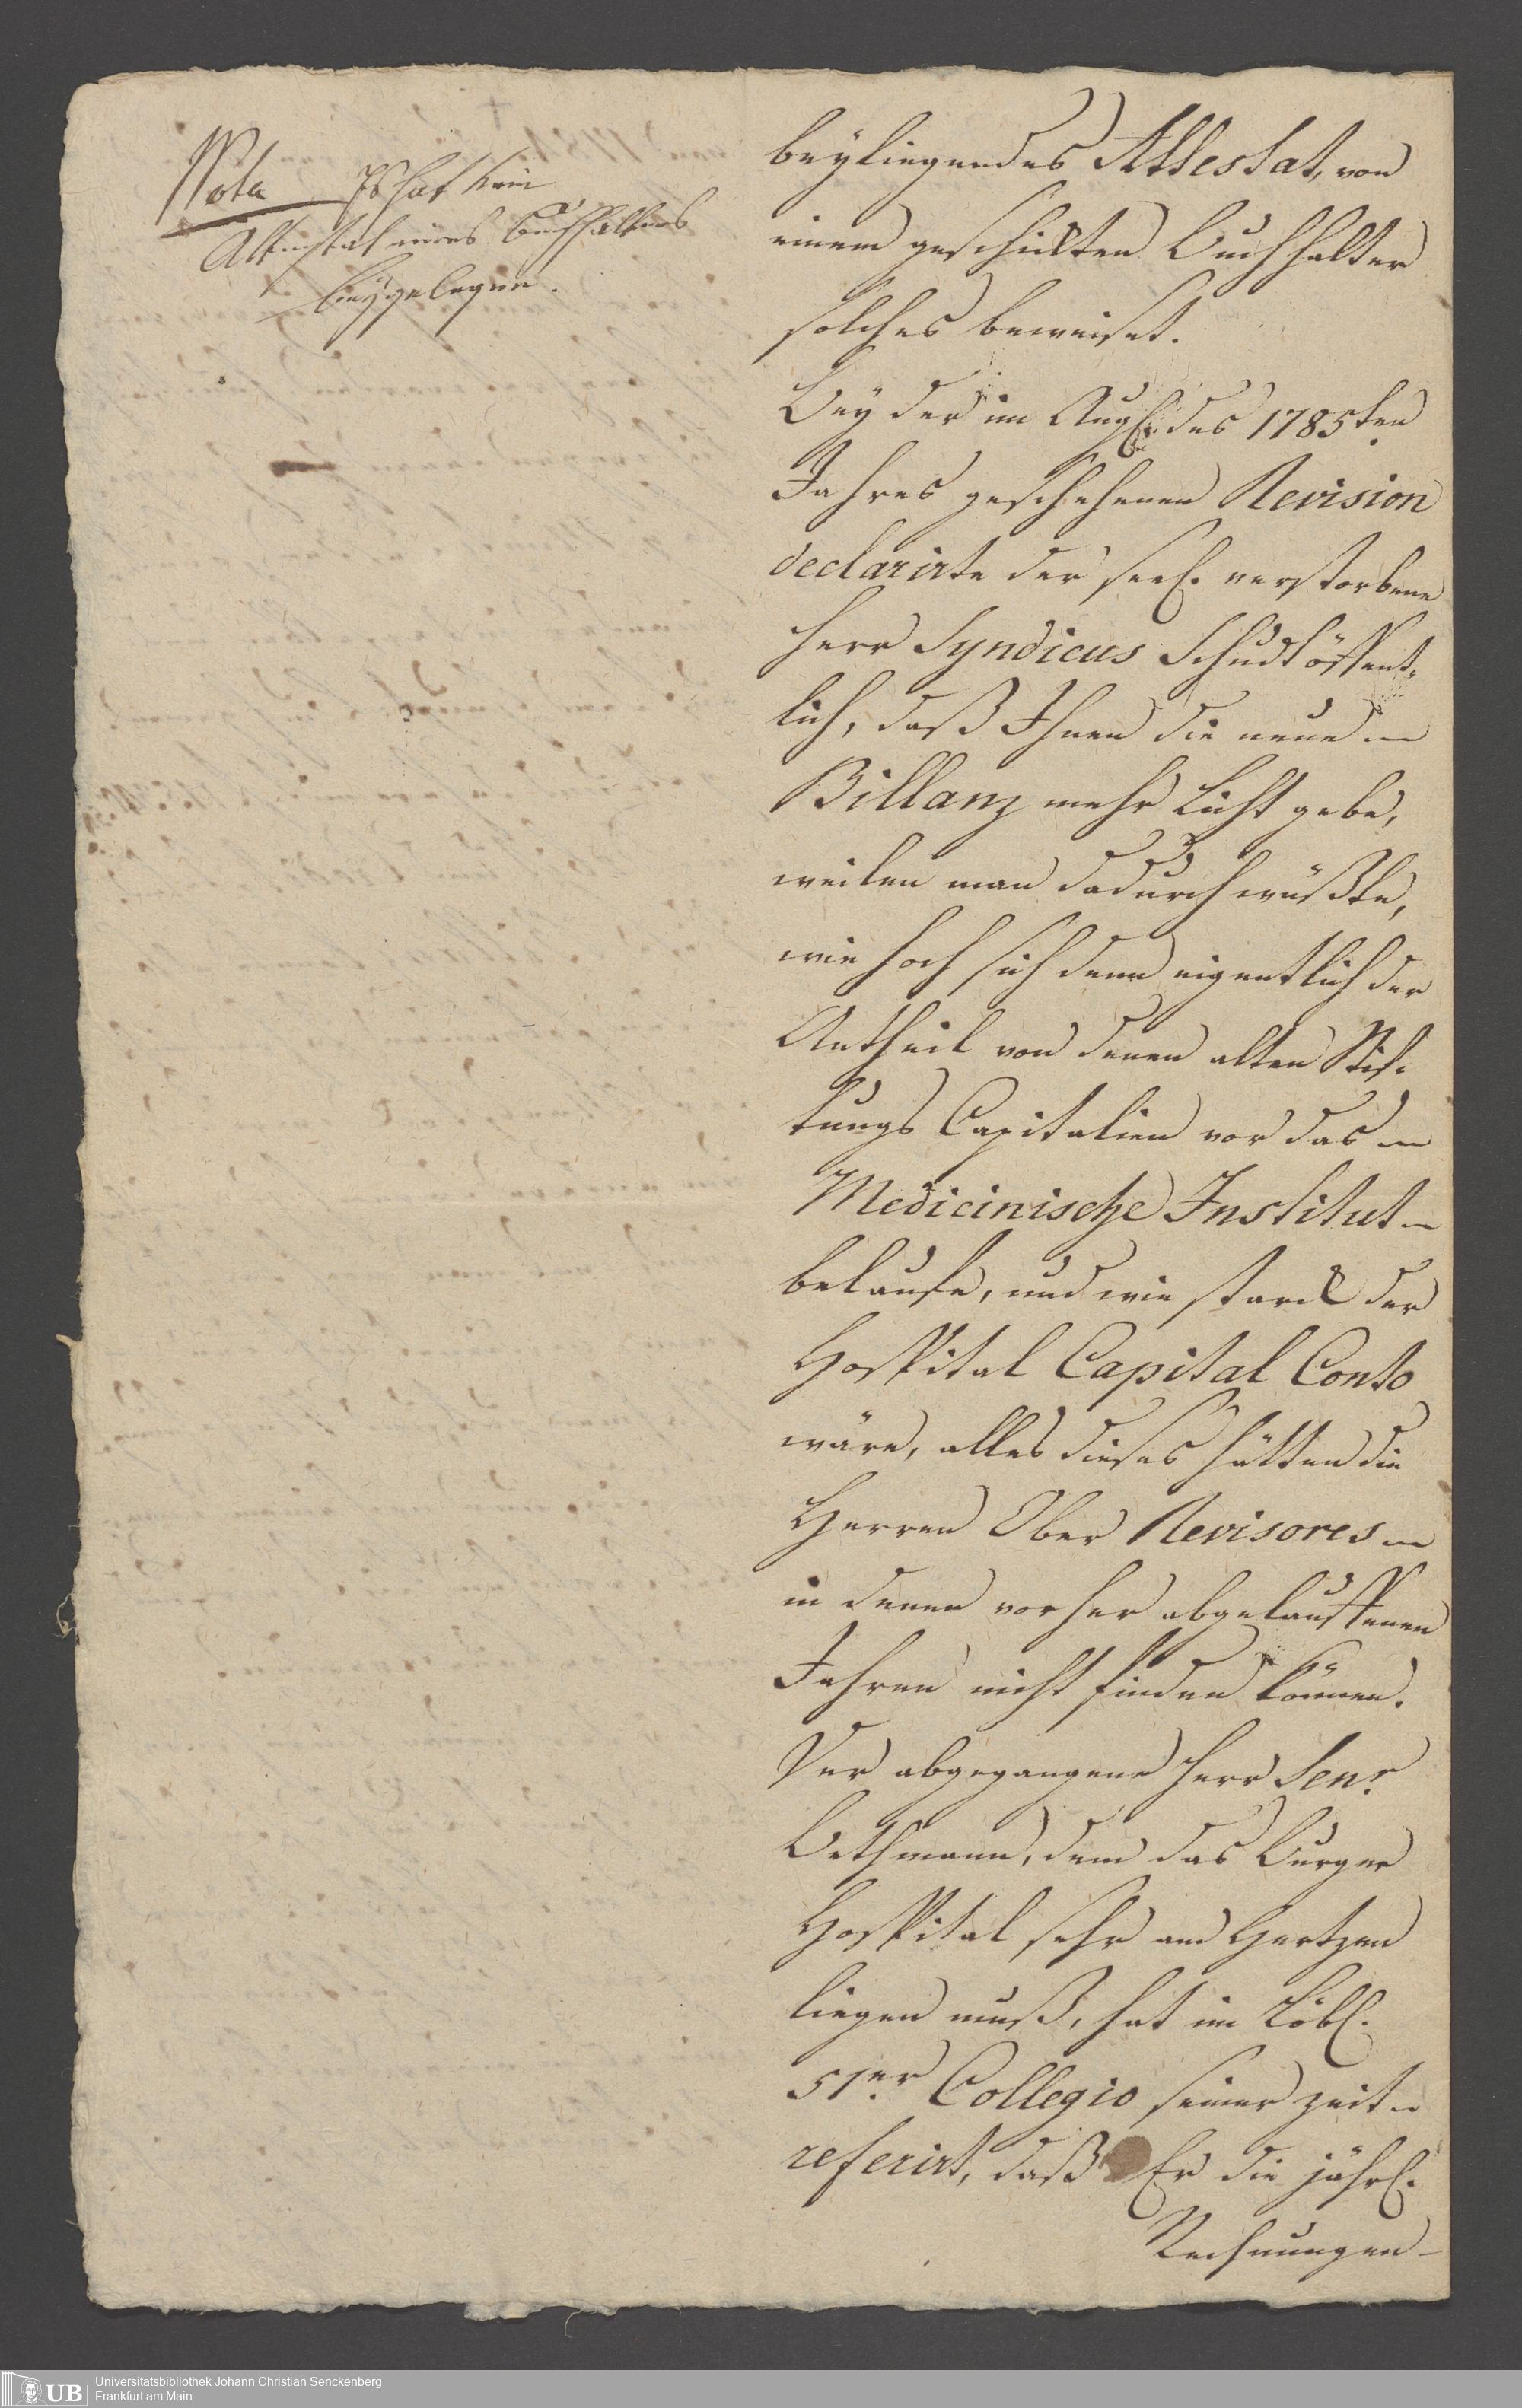 Nota Es hat kein
Attestat eines Buchhalters
beygelegen.
beyliegendes Attestat, von
einem geschickten Buchhalter
solches beweiset.
Bey der im Augl. des 1785ten
Jahres geschehenen Revision
declarirte der seel. verstorbene
Herr Syndicus Schudt öffent-
lich, daß Ihnen die neue
Billanz mehr Licht gebe,
weilen man dadurch wüßte,
wie hoch sich denn eigentlich der
Antheil von denen alten Stif-
tungs Capitalien vor das
Medicinische Institut
belaufe, und wie starck der
Hospital Capital Conto
wäre, alles dieses hätten die
Herren Ober Revisores
in denen vorher abgelauffenen
Jahren nicht finden können.
Der abgegangene Herr Senr.
Bethmann, dem das Burger
Hospital sehr am Hertzen
liegen muß, hat im Löbl.
51er Collegio seiner zeit
referirt, daß Er die jährl.
Rechnungen
UB Universitätsbibliothek Johann Christian Senckenberg
Frankfurt am Main